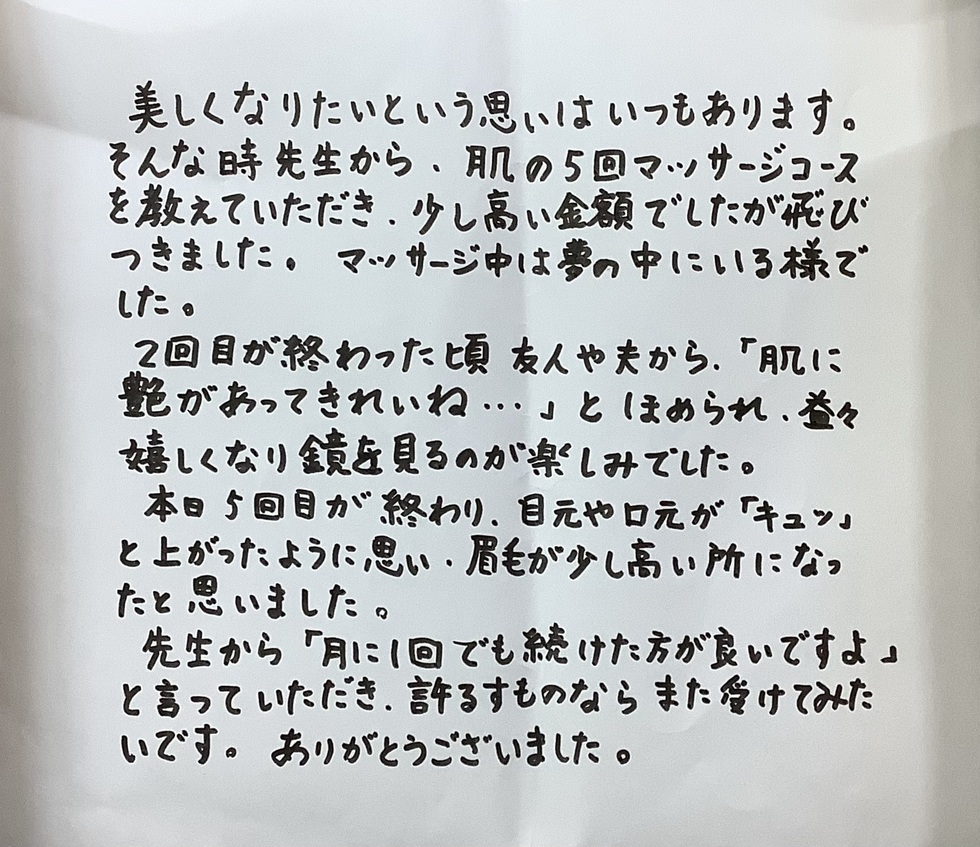 美しくなりたいという思いはいつもあります。
そんな時先生から、肌の5回マッサージコース
を教えていただき、少し高い金額でしたが飛び
つきました。 マッサージ中は夢の中にいる様で
した。
2回目が終わった頃 友人や夫から、「肌に
艶があってきれいね…」とほめられ、益々
嬉しくなり鏡を見るのが楽しみでした。
本日5回目が終わり、目元や口元が「キュッ」
と上がったように思い、眉毛が少し高い所になっ
たと思いました。
先生から「月に1回でも続けた方が良いですよ」
と言っていただき、許るすものならまた受けてみた
いです。 ありがとうございました。